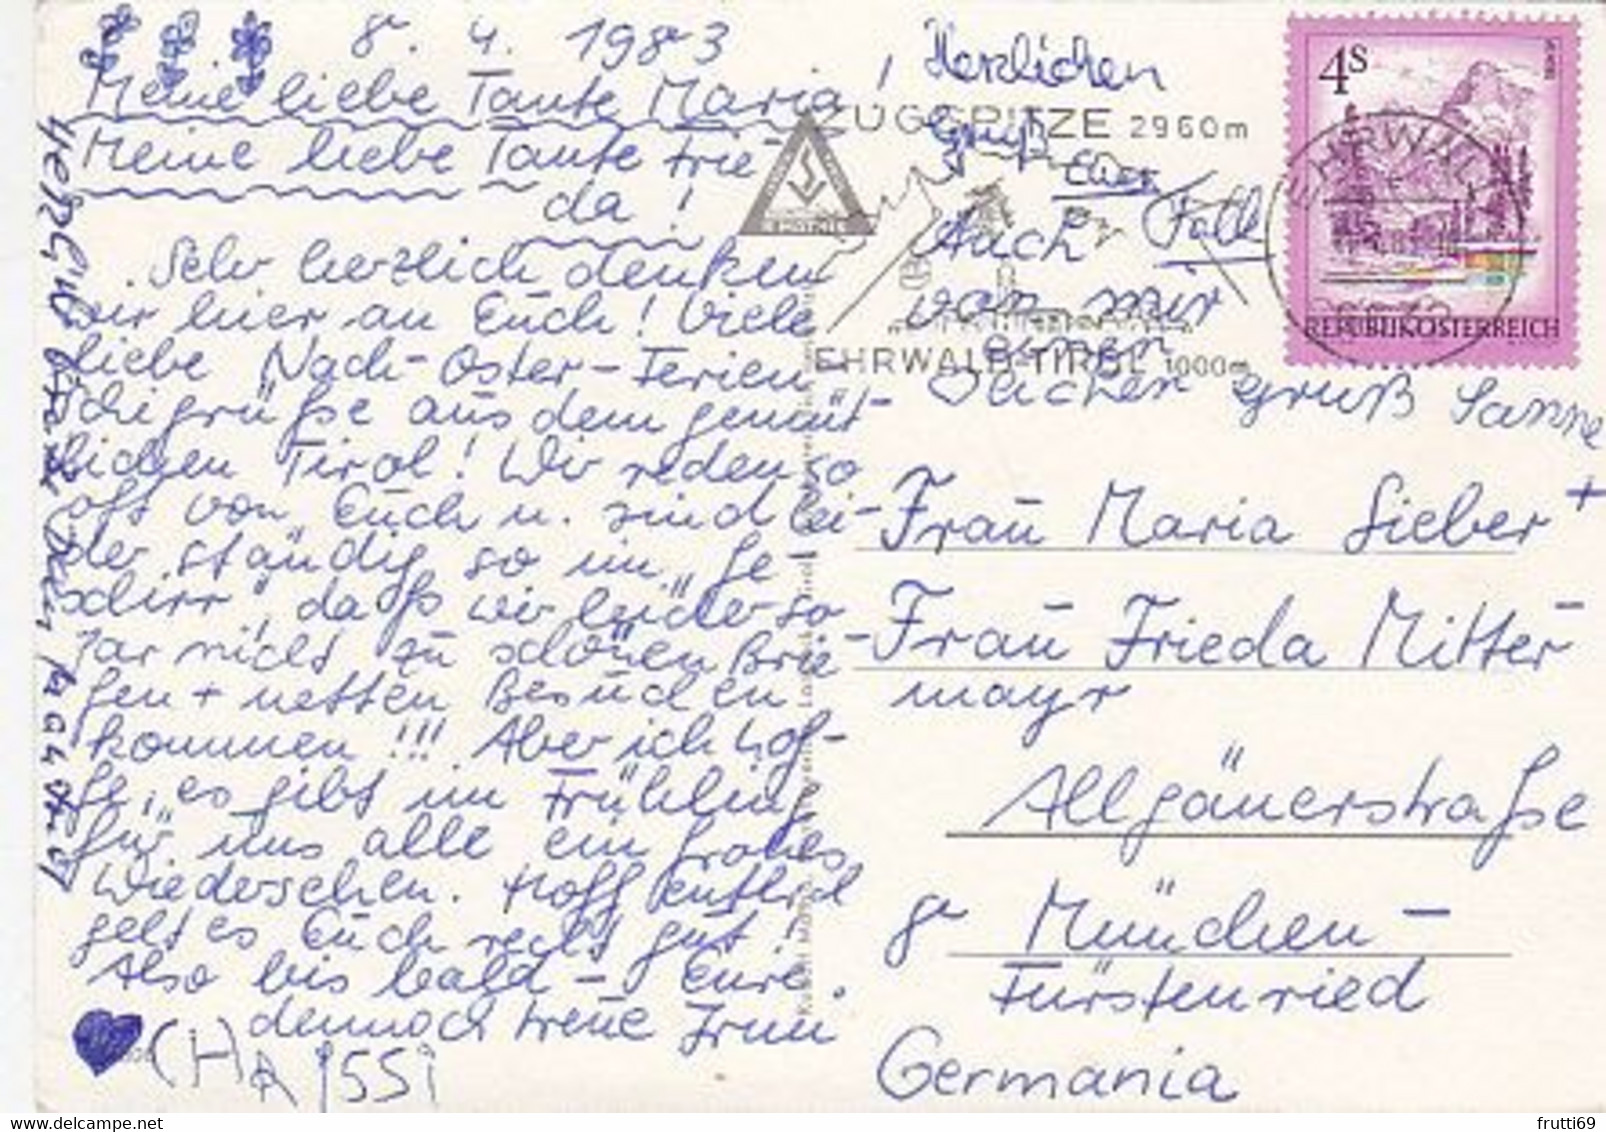 8. 4. 1983
Meine liebe Tante Maria,
Meine liebe Tante Frie
da!
Sehr herzlich denken
wir hier an Euch! Viele
liebe Nach-Oster-Ferien-
Schigrüße aus dem gemüt-
lichen Tirol! Wir reden so
oft von Euch u. sind lei-
der ständig so im „Ge
schirr", daß wir leider so
gar nicht zu schönen Brie-
fen + netten Besuchen
kommen!!! Aber ich hof-
fe, es gibt im Frühling
für uns alle ein frohes
Wiedersehen. Hoffentlich
geht es Euch recht gut!
Also bis bald - Eure
dennoch treue Irmi
CHRISSI
Herzlichen
Gruß
Euer
Auch
von mir
einen
Gruß Sanne
ZUGSPITZE 2960m
EHRWALD-TIROL 1000m
4S
REPUBLIK ÖSTERREICH
EHRWALD
Frau Maria Sieber +
Frau Frieda Mitter
mayr
Allgäuerstraße
8 München-
Fürstenried
Germania
frutti69